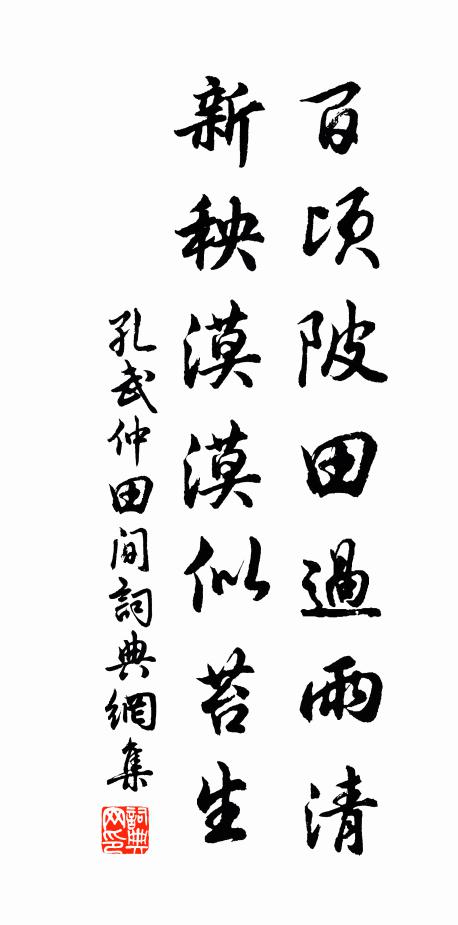 百頃陂田過雨清
新秧漠漠似苔生
孔武仲田间詞典網集
詞典网印